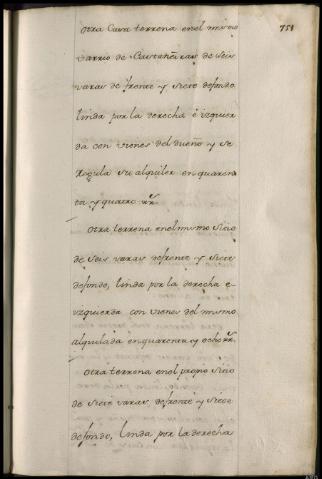 otra Casa terrena en el mismo
751
varrio de Castañeiras de seis
varas de frente y siete defondo
linda por la derecha è izquier
da con vienes del dueño y se
Regula su alquiler en quaren
ta y quatro rrs
otra terrena enelmismo sitio
de seis varas defrente y siete
defondo, linda por la derecha e
yzquierda con vienes del mismo
alquilada enquarenta y ocho rrs
otra terrena enel propio sitio
de siete varas, defrente y siete
defondo, Linda por la derecha